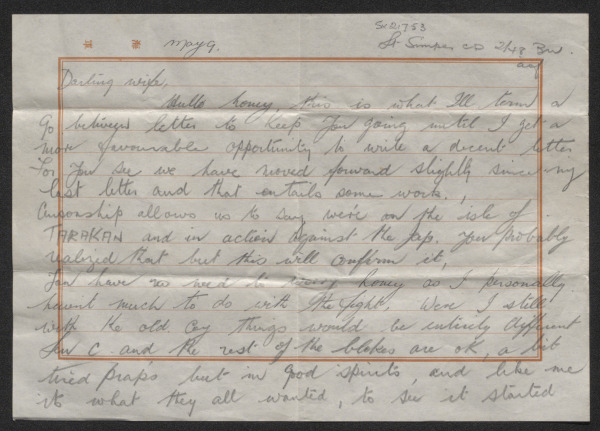 May 9.
St Simpes CO 2/48 Bn.
aif
Darling wife,
Hullo honey, this is what I'll term a
go between letter to keep you going until I get a
more favourable opportunity to write a decent letter
For you see we have moved forward slightly since my
last letter and that entails some work.
Censorship allows us to say we're on the isle of
TARAKAN and in action against the Jap. You probably
realized that but this will confirm it,
You have no need to worry honey as I personally
havent much to do with the fight. Were I still
with the old Coy things would be entirely different
C. and the rest of the blokes are ok, a bit
tired praps but in good spirits, and like me
it's what they all wanted, to see it started